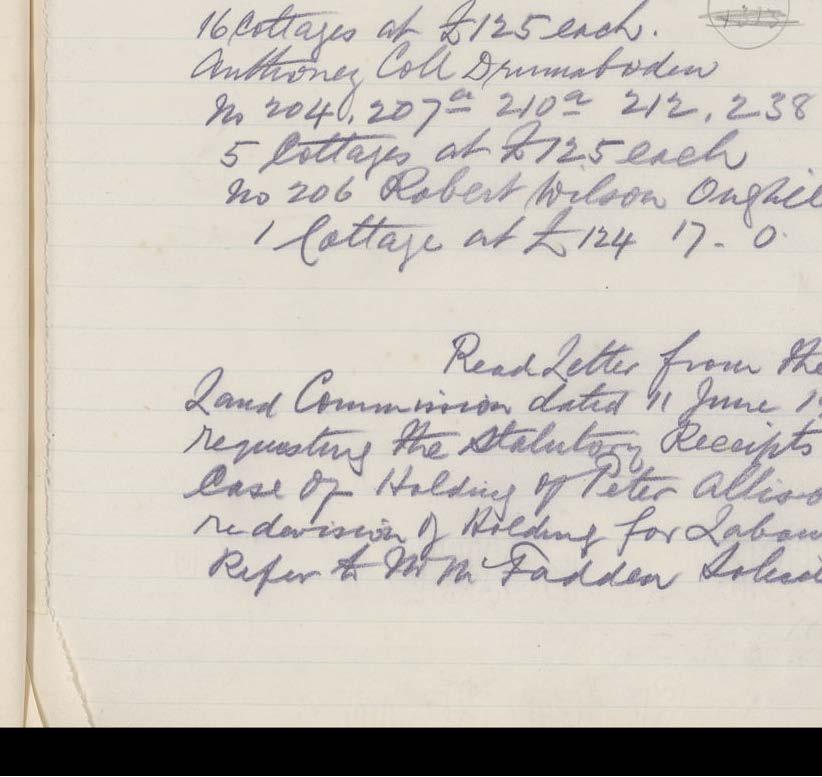 16 Cottages at £125 each.
Anthoney Coll Drumaboden
No 204, 207a 210a 212, 238
5 Cottages at £125 each
No 206 Robert Wilson
1 Cottage at £124 17 - 0
Read Letter from the
Land Commission dated 11 June 19
requesting the Statutory Receipts
Case of Holding of Peter
redivision of Holding for
Refer to Mr McFadden